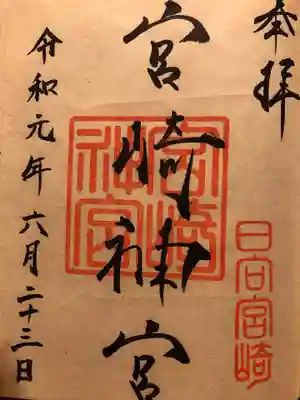 奉拝
日向宮崎
宮崎神宮
宮崎神宮
令和元年六月二十三日